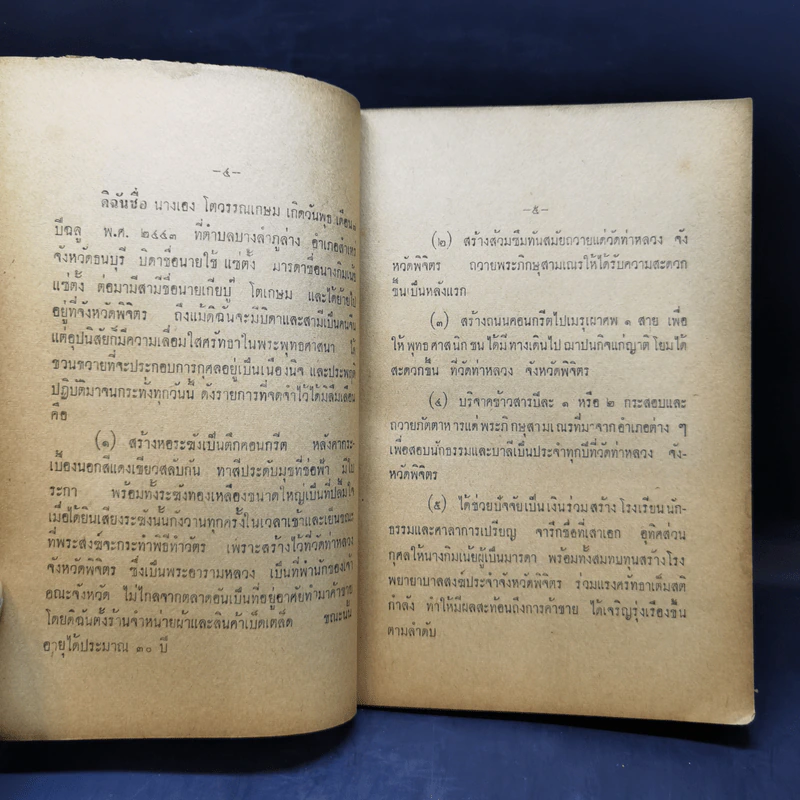 —๔—
ดิฉันชื่อ นางเฮง โตวรรณเกษม เกิดวันพุธ เดือน
ปีฉลู พ.ศ. ๒๔๔๓ ที่ตำบลบางลำภูล่าง อำเภอ
จังหวัดธนบุรี บิดาชื่อนายใช้ แซ่ตั้ง มารดาชื่อนางกิมเน้ย
แซ่ตั้ง ต่อมามีสามีชื่อนายเกียบู๊ โตเกษม และได้ย้ายไป
อยู่ที่จังหวัดพิจิตร ถึงแม้ดิฉันจะมีบิดาและสามีเป็นคนจีน
แต่อุปนิสัยก็มีความเลื่อมใสศรัทธาในพระพุทธศาสนา ได้
ขวนขวายที่จะประกอบการกุศลอยู่เป็นเนืองนิจ และประพฤติ
ปฏิบัติมาจนกระทั่งทุกวันนี้ ดังรายการที่จดจำไว้ได้มิลืมเลือน
คือ
(๑) สร้างหอระฆังเป็นตึกคอนกรีต หลังคากระ-
เบื้องนอกสีแดงเขียวสลับกัน ทาสีประดับมุขที่ช่อฟ้า มีใบ
ระกา พร้อมทั้งระฆังทองเหลืองขนาดใหญ่เป็นที่ปลื้มใจ
เมื่อได้ยินเสียงระฆังนั้นกังวานทุกครั้งในเวลาเช้าและเย็นขณะ
ที่พระสงฆ์จะกระทำพิธีทำวัตร เพราะสร้างไว้ที่วัดท่าหลวง
จังหวัดพิจิตร ซึ่งเป็นพระอารามหลวง เป็นที่พำนักของเจ้า
คณะจังหวัด ไม่ไกลจากตลาดอันเป็นที่อยู่อาศัยทำมาค้าขาย
โดยดิฉันตั้งร้านจำหน่ายผ้าและสินค้าเบ็ดเตล็ด ขณะนั้น
อายุได้ประมาณ ๓๐ ปี
—๕—
(๒) สร้างส้วมซึมทันสมัยถวายแด่วัดท่าหลวง จัง
หวัดพิจิตร ถวายพระภิกษุสามเณรให้ได้รับความสะดวก
ขึ้นเป็นหลังแรก
(๓) สร้างถนนคอนกรีตไปเมรุเผาศพ ๑ สาย เพื่อ
ให้ พุทธ ศาสนิก ชน ได้มี ทางเดินไป ฌาปนกิจแก่ญาติ โยมได้
สะดวกขึ้น ที่วัดท่าหลวง จังหวัดพิจิตร
(๔) บริจาคข้าวสารปีละ ๑ หรือ ๒ กระสอบและ
ถวายภัตตาหารแด่ พระภิกษุสามเณรที่มาจากอำเภอต่าง ๆ
เพื่อสอบนักธรรมและบาลีเป็นประจำทุกปีที่วัดท่าหลวง จัง-
หวัดพิจิตร
(๕) ได้ช่วยปัจจัยเป็นเงินร่วมสร้าง โรงเรียนนัก-
ธรรมและศาลาการเปรียญ จารึกชื่อที่เสาเอก อุทิศส่วน
กุศลให้นางกิมเน้ยผู้เป็นมารดา พร้อมทั้งสมทบทุนสร้างโรง
พยายาบาลสงฆ์ประจำจังหวัดพิจิตร ร่วมแรงศรัทธาเต็มสติ
กำลัง ทำให้มีผลสะท้อนถึงการค้าขาย ได้เจริญรุ่งเรืองขึ้น
ตามลำดับ